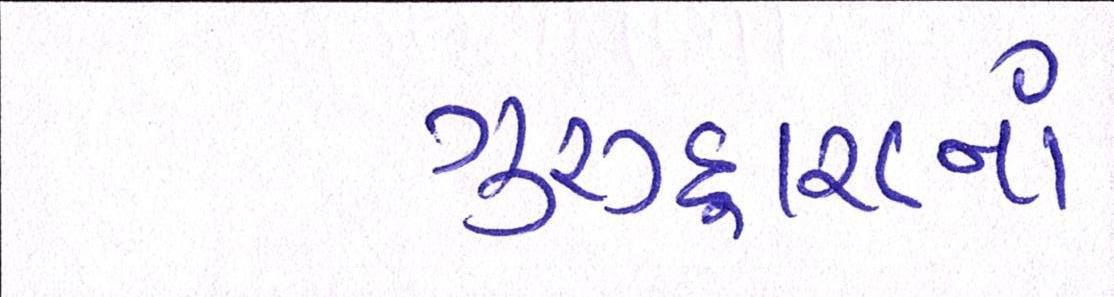 ગુરુદ્વારાનાં